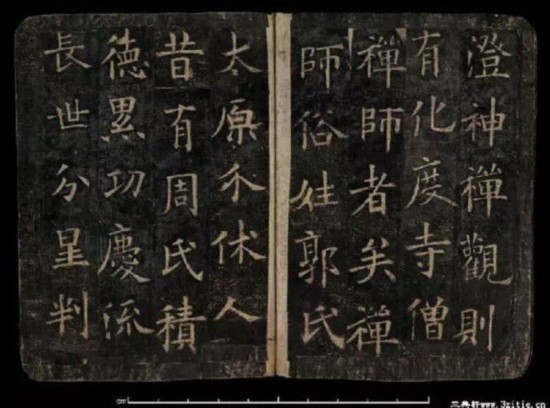 澄神禪觀則
有化度寺僧
禪師者矣禪
師俗姓郭氏
太原介休人
昔有周氏積
德累功慶流
長世分星判
cm
三典轩www.3zitie.cn